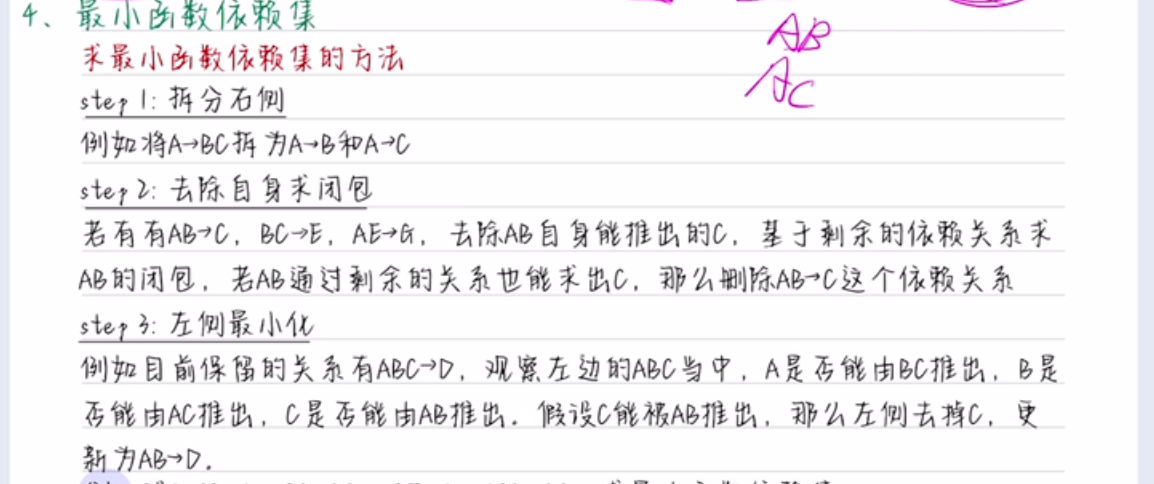 4、最小函数依赖集
AB
求最小函数依赖集的方法
AC
step 1: 拆分右侧
例如将A→BC拆为A→B和A→C
step 2: 去除自身求闭包
若有有AB→C, BC→E, AE→G, 去除AB自身能推出的C, 基于剩余的依赖关系求
AB的闭包, 若AB通过剩余的关系也能求出C, 那么删除AB→C这个依赖关系
step 3: 左侧最小化
例如目前保留的关系有ABC→D, 观察左边的ABC当中, A是否能由BC推出, B是
否能由AC推出, C是否能由AB推出. 假设C能被AB推出, 那么左侧去掉C, 更
新为AB→D.